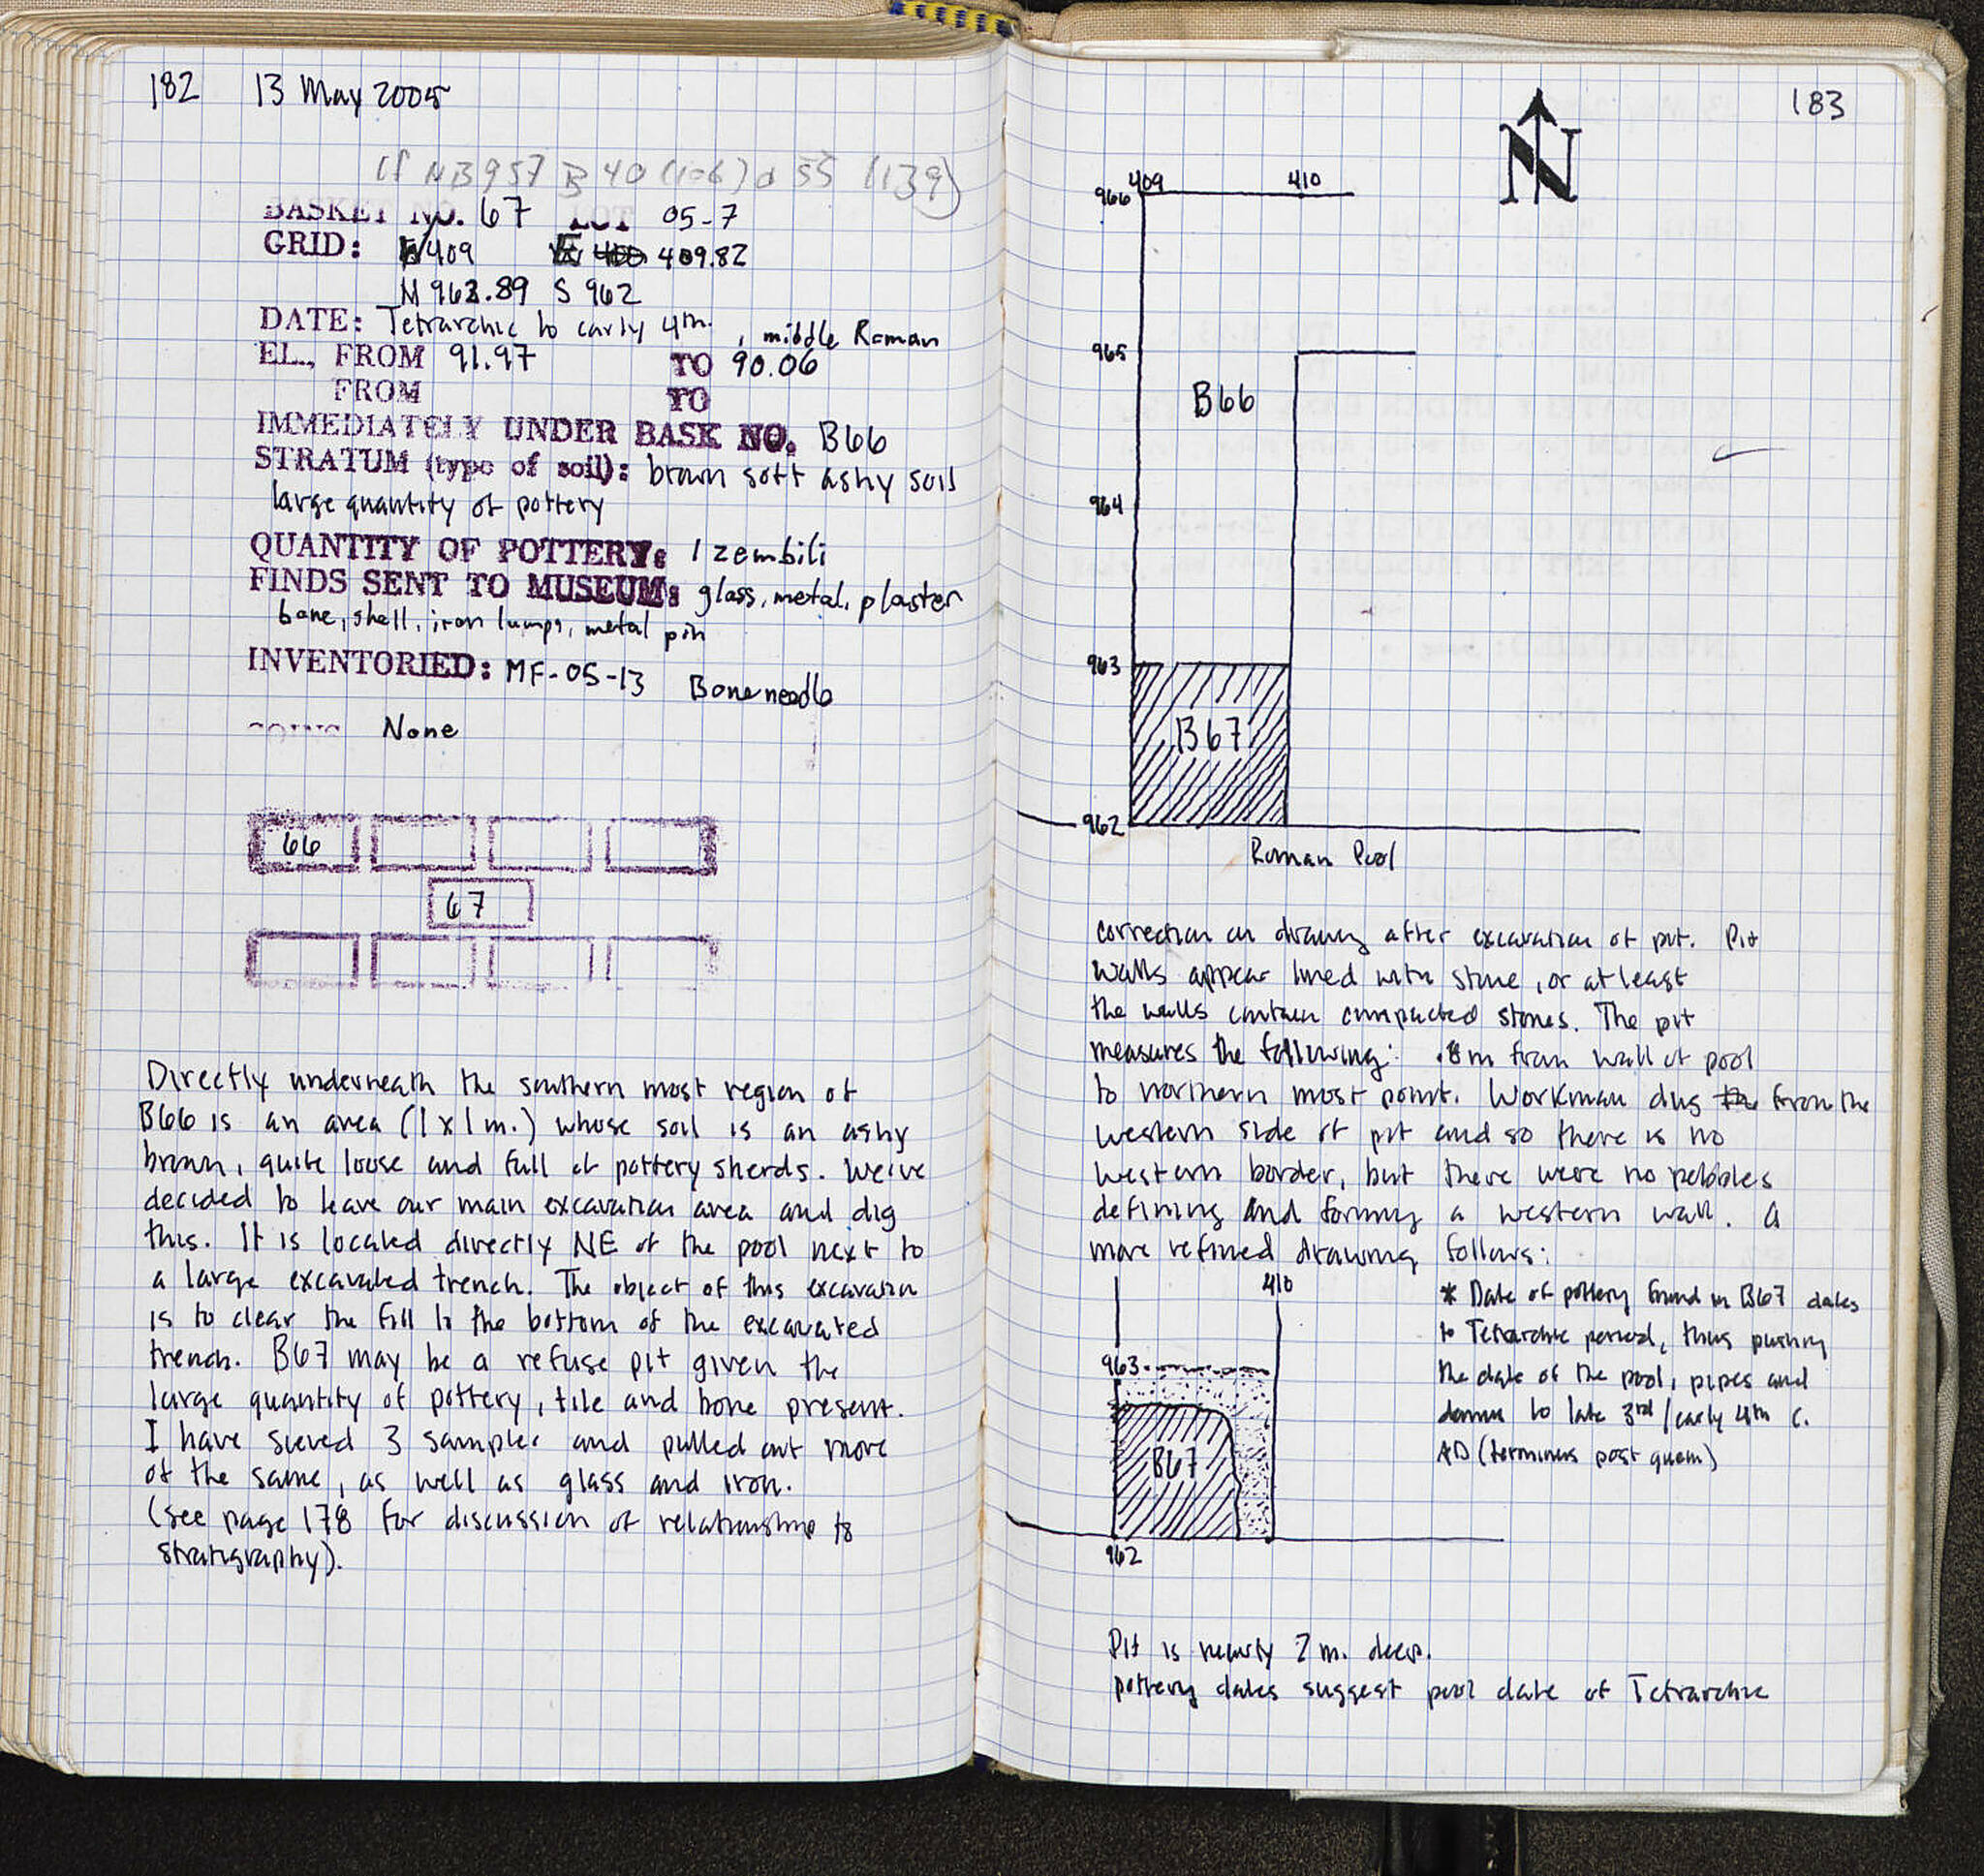 182 13 May 2005
cf NB957 B 40 (106) & 55 (139)
BASKET NO. 67 LOT 05-7
GRID: 409 409.82
N 962.89 S 962
DATE: Tetrarchic to early 4th. , middle Roman
EL., FROM 91.97 TO 90.06
FROM TO
IMMEDIATELY UNDER BASK NO. B66
STRATUM (type of soil): brown soft ashy soil
large quantity of pottery
QUANTITY OF POTTERY: 1 zembili
FINDS SENT TO MUSEUM: glass, metal, plaster
bone, shell, iron lumps, metal pin
INVENTORIED: MF-05-13 Bone needle
COINS None
66
67
Directly underneath the southern most region of
B66 is an area (1x1m.) whose soil is an ashy
brown, quite loose and full of pottery sherds. We've
decided to leave our main excavation area and dig
this. It is located directly NE of the pool next to
a large excavated trench. The object of this excavation
is to clear the fill to the bottom of the excavated
trench. B67 may be a refuse pit given the
large quantity of pottery, tile and bone present.
I have sieved 3 samples and pulled out more
of the same, as well as glass and iron.
(see page 178 for discussion of relationship to
stratigraphy).
183
N
409 410
966
965
B66
964
963
B67
962
Roman Pool
correction on drawing after excavation of pit. Pit
walls appear lined with stone, or at least
the walls contain compacted stones. The pit
measures the following: .8m from wall of pool
to northern most point. Workman dug from the
western side of pit and so there is no
western border, but there were no pebbles
defining and forming a western wall. A
more refined drawing follows:
410
963
B67
962
* Date of pottery found in B67 dates
to Tetrarchic period, thus pushing
the date of the pool, pipes and
domus to late 3rd/early 4th C.
AD (terminus post quem)
Pit is nearly 2 m. deep.
pottery dates suggest pool date of Tetrarchic